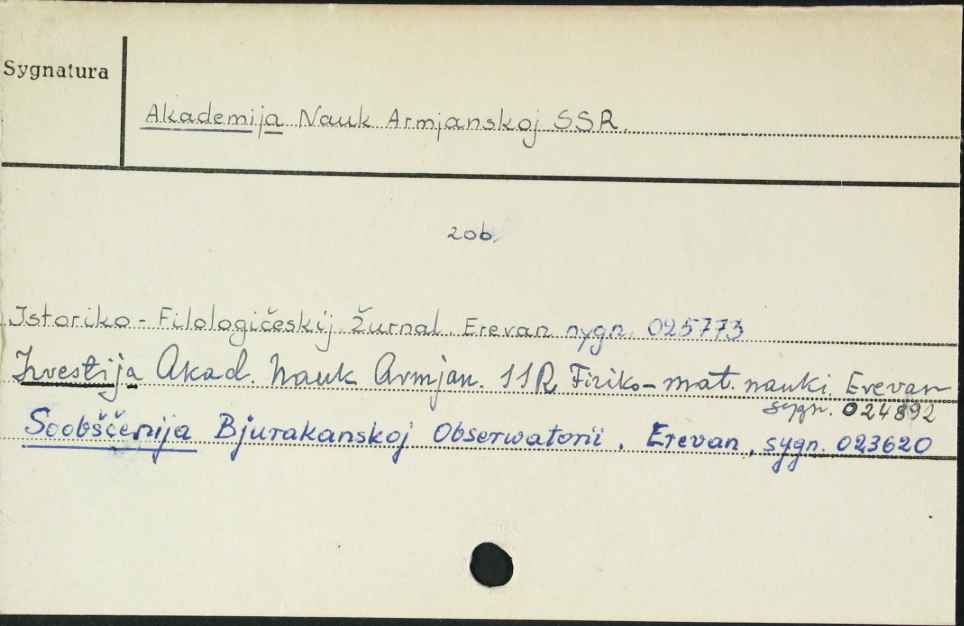 Sygnatura
Akademija Nauk Armjanskoj SSR.
zob.
Istoriko-Filologičeskij Žurnal. Erevan sygn. 025773
Izvestija Akad. Nauk Armjan. SSR, Fiziko-mat. nauki. Erevan
sygn. 024892
Soobščenija Bjurakanskoj Obserwatorii, Erevan, sygn. 023620